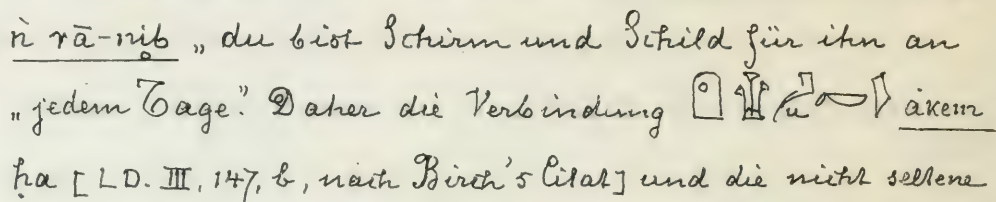 ṅ rā-nib̥ „du bist Schirm und Schild für ihn an
„jedem Tage". Daher die Verbindung ȧkem
ḥa [LD. III, 147, b, nach Birch's Citat] und die nicht seltene